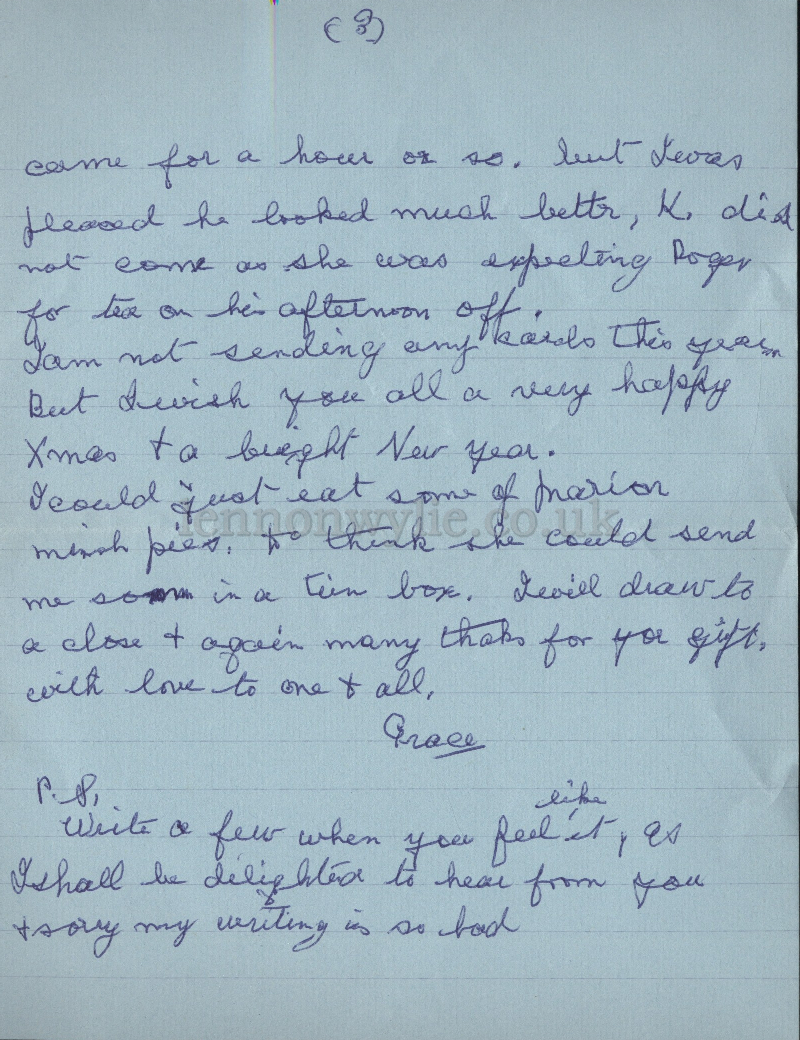 (3)
came for a hour or so. but I was
pleased he looked much bettr, K. did
not come as she was expecting Roger
for tea on his afternoon off.
I am not sending any cards this year
But I wish you all a very happy
Xmas & a bright New year.
I could just eat some of Marion
minch pies. to think she could send
me som in a tin box. I will draw to
a close & again many thaks for yor gift.
with love to one & all.
Grace
P.S.
like
Write a few when you feel it, as
I shall be delighted to hear from you
& sorry my writing is so bad
lennonwylie.co.uk